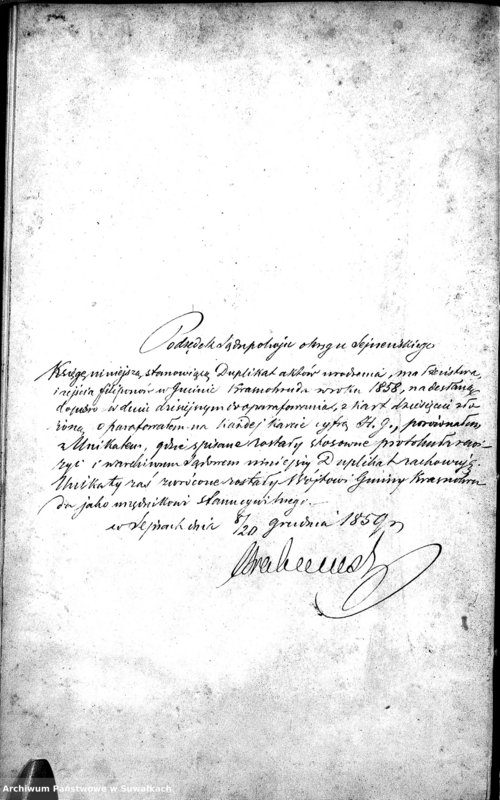 Podsędek Sądu pokoju okręgu Sejneńskiego
Księgę niniejszą, stanowiącą Duplikat aktów urodzenia, małżeństwa,
i zejścia filiponów w Gminie Krasnowruda w roku 1858, nadesłaną
dopiero w dniu dzisiejszym do oparafowania, z kart dziesięciu zło-
żoną, oparafowałem na każdej karcie cyfrą, porównałem
z Unikatem, gdzie spisane zostały stosowne protokuła
i w archiwum Sądowem niniejszy Duplikat zachowuję,
Unikaty zaś zwrócone zostały Wójtowi Gminy Krasnowru
da jako urzędnikowi stanu cywilnego.
w Sejnach dnia 8/20 grudnia 1859 r
Archiwum Państwowe w Suwałkach